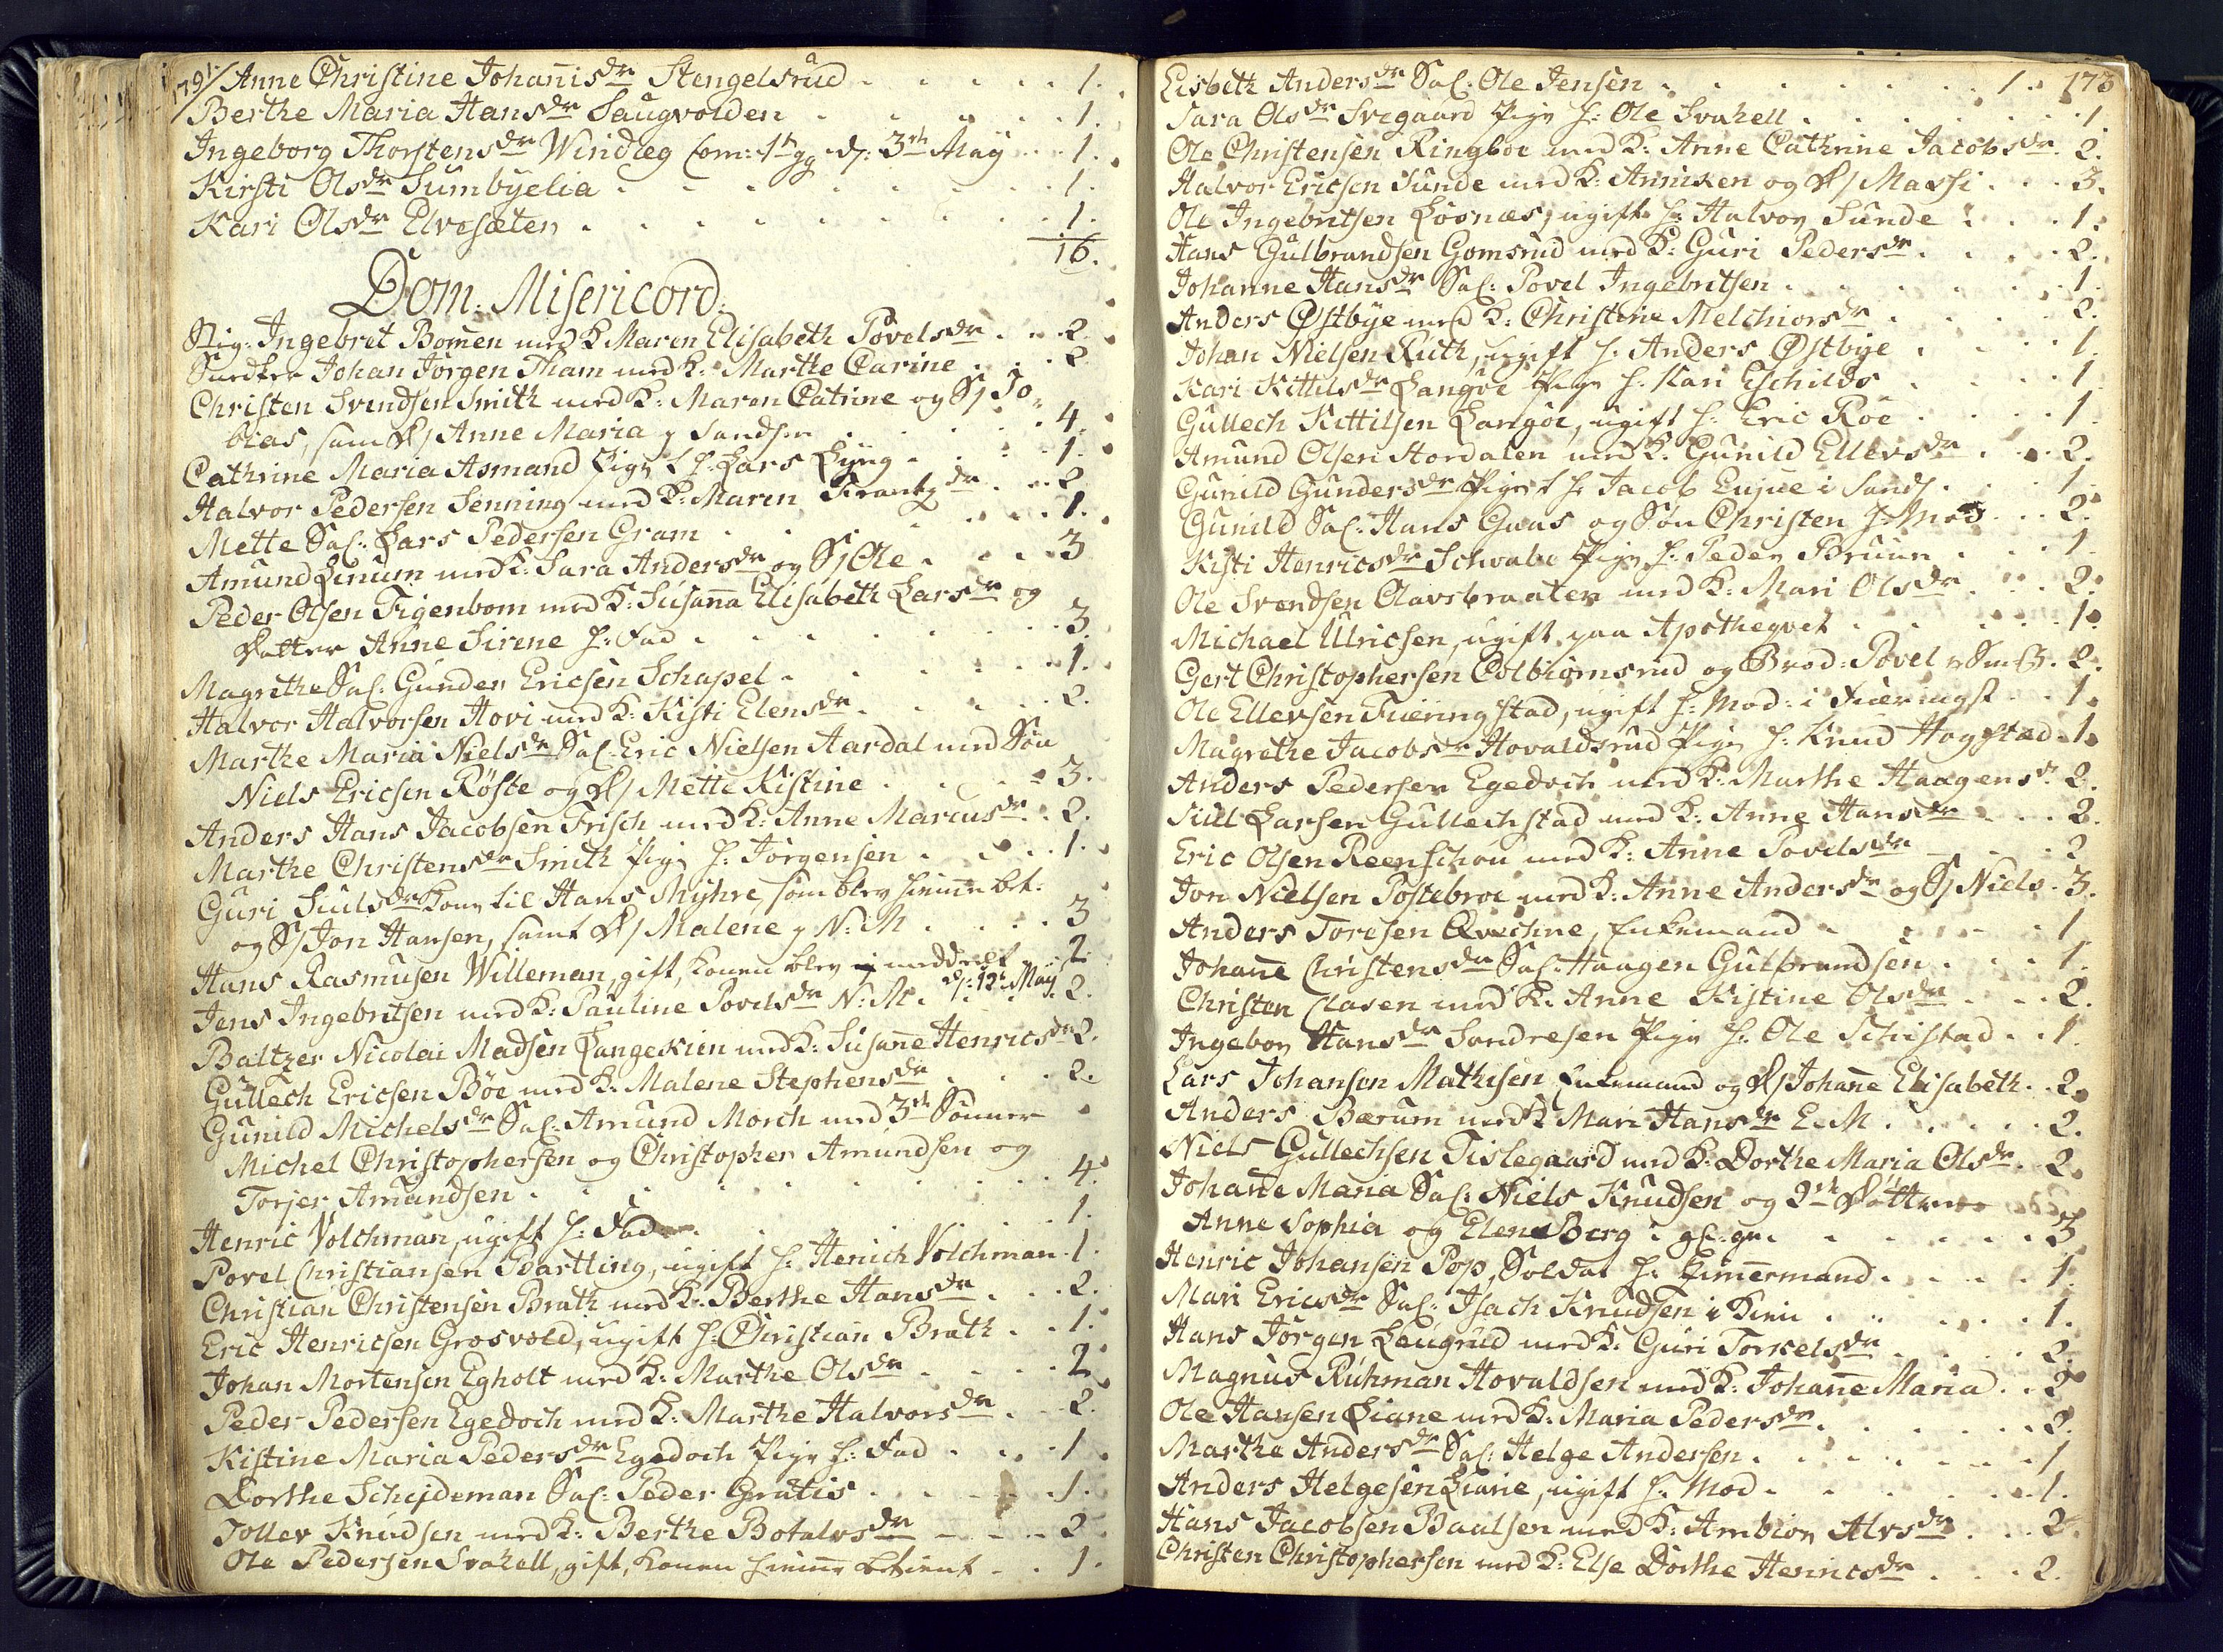 1791
Anne Christine Johanisdr Stengelsrud . . . . . 1.
Berthe Maria Hansdr Saugvolden . . . . . 1.
Ingeborg Thorstensdr Windleg Com: 1te gg d: 3die May . . 1.
Kirsti Olsdr Sumbyelia . . . . . 1.
Kari Olsdr Elvesæten . . . . . 1.
16.
Dom: Misericord:
Sig: Ingebret Bomen med K: Maren Elisabeth Povelsdr . . 2.
Johan Jørgen Tham med K: Marthe Carine . . 2
Christen Svendsen Smith med K: Maren Catrine og S/ To-
bias, samt D/ Anne Maria p Sandsv . . . 4.
Cathrine Maria Asmand Pige h: Lars Lyng . . . 1.
Halvor Pedersen Senning med K: Maren Frantzdr . . 2
Mette Sal: Lars Pedersen Gram . . . 1.
Amund Linum med K: Sara Andersdr og S/ Ole . . . 3
Peder Olsen Figenbom med K: Susana Elisabeth Larsdr og
Datter Anne Sirene h: Fad . . . 3
Magrethe Sal: Gunder Ericsen Schapel . . . 1.
Halvor Halvorsen Hovi med K: Kisti Elensdr . . . 2.
Marthe Maria Nielsdr Sal: Eric Nielsen Aardal med Søn
Niels Ericsen Røste og D/ Mette Kistine . . . 3.
Anders Hans Jacobsen Frisch med K: Anne Marcusdr . 2.
Marthe Christensdr Smith Pige h: Jørgensen . . . 1.
Guri Siulsdr Kone til Hans Myhre, som blev hieme bet:
og S/ Jon Hansen, samt D/ Malene p N: M . . . 3
Hans Rasmusen Willeman, gift, Konen blev ej meddeelt . 1
d: 12te May
Jens Ingebritsen med K: Pauline Povelsdr N: M . . 2.
Baltzer Nicolai Madsen Langeskien med K: Susane Henricsdr 2.
Gullech Ericsen Bøe med K: Malene Stephensdr . . . 2.
Gunild Michelsdr Sal: Amund Morch med 3de Sønner
Michel Christophersen og Christopher Amundsen og
Torjer Amundsen . . . 4.
Henric Volchman, ugift h: Fad . . . 1.
Povel Christiansen Bartling, ugift h: Henich Volchman . 1.
Christian Christensen Brath med K: Berthe Hansdr . . 2.
Eric Henricsen Grosvold, ugift h: Christian Brath . . 1.
Johan Mortensen Egholt med K: Marthe Olsdr . . . 2
Peder Pedersen Egedoch med K: Marthe Halvorsdr . . 2.
Kistine Maria Pedersdr Egedoch Pige h: Fad . . . 1.
Dorthe Schejdeman Sal: Peder Gratis . . . 1.
Tollev Knudsen med K: Berthe Botalvsdr . . . 2.
Ole Pedersen Svahell, gift, Konen hieme betient . . 1.
Lisbeth Andersdr Sal: Ole Jensen . . . 1. 173
Sara Olsdr Svegaard Pige h: Ole Svahell . . . 1.
Ole Christensen Ringboe med K: Anne Cathrine Jacobsdr . 2.
Halvor Ericsen Sunde med K: Anniken og D/ Massi . . . 3.
Ole Ingebritsen Løsnæs, ugift h: Halvor Sunde . . . 1.
Hans Gulbrandsen Gomsrud med K: Guri Pedersdr . . . 2.
Johanne Hansdr Sal: Povel Ingebritsen . . . 1.
Anders Østbye med K: Christine Melchiorsdr . . . 2.
Johan Nielsen Ruth, ugift h: Anders Østbye . . . 1.
Kari Kittilsdr Langøe Pige h: Kari Eschilds . . . 1.
Gullech Kittilsen Langøe, ugift h: Eric Røe . . . 1
Amund Olsen Stordalen med K: Gunild Ellevsdr . . . 2.
Gunild Gundersdr Pige h: Jacob Lujue i Sands . . . 1.
Gunild Sal: Hans Guas og Søn Christen h: Mod . . 2.
Kisti Henricsdr Schwabe Pige h: Peder Bruun . . . 1.
Ole Svendsen Olavsbraaten med K: Mari Olsdr . . . 2.
Michael Ulricsen, ugift paa Apotheqvet . . . 1.
Gert Christophersen Colbiørnsrud og Brod: Povel . 2.
Ole Ellevsen Fieringstad, ugift h: Mod: i Fieringst . . 1.
Magrethe Jacobsdr Hovaldsrud Pige h: Knud Hagstad . 1.
Anders Pedersen Egedoch med K: Marthe Haagensdr 2.
Siul Larsen Gullechstad med K: Anne Hansdr . . . 2.
Eric Olsen Reenschou med K: Anne Povelsdr . . . 2
Jon Nielsen Postebroe med K: Anne Andersdr og S/ Niels . 3.
Anders Toresen Qvechne, Enkemand . . . 1
Johane Christensdr Sal: Haagen Gulbrandsen . . . 1.
Christen Clasen med K: Anne Kistine Olsdr . . . 2.
Ingebor Hansdr Sandresen Pige h: Ole Schistad . . 1.
Lars Johansen Mathisen Enkemand og D/ Johane Elisabeth . . 2.
Anders Bærum med K: Mari Hansdr E: M . . . 2.
Niels Gullechsen Tislegaard med K: Dorthe Maria Olsdr . 2.
Johane Maria Sal: Niels Knudsen og 2de Døttre
Anne Sophia og Elen Berg i gl: gr . . . 3
Henric Johansen Pop, Soldat h: Zimermand . . . 1.
Mari Ericsdr Sal: Isach Knudsen i Kirn . . . 1.
Hans Jørgen Laugrud med K: Guri Torkelsdr . . . 2.
Magnus Ruhman Hovaldsen med K: Johane Maria . . 2
Ole Hansen Liane med K: Maria Pedersdr . . . 2.
Marthe Andersdr Sal: Helge Andersen . . . 1
Anders Helgesen Liane, ugift h: Mod . . . 1.
Hans Jacobsen Baalsen med K: Ambior Alvsdr . . . 2.
Christen Christophersen med K: Else Dorthe Henricsdr . . . 2.